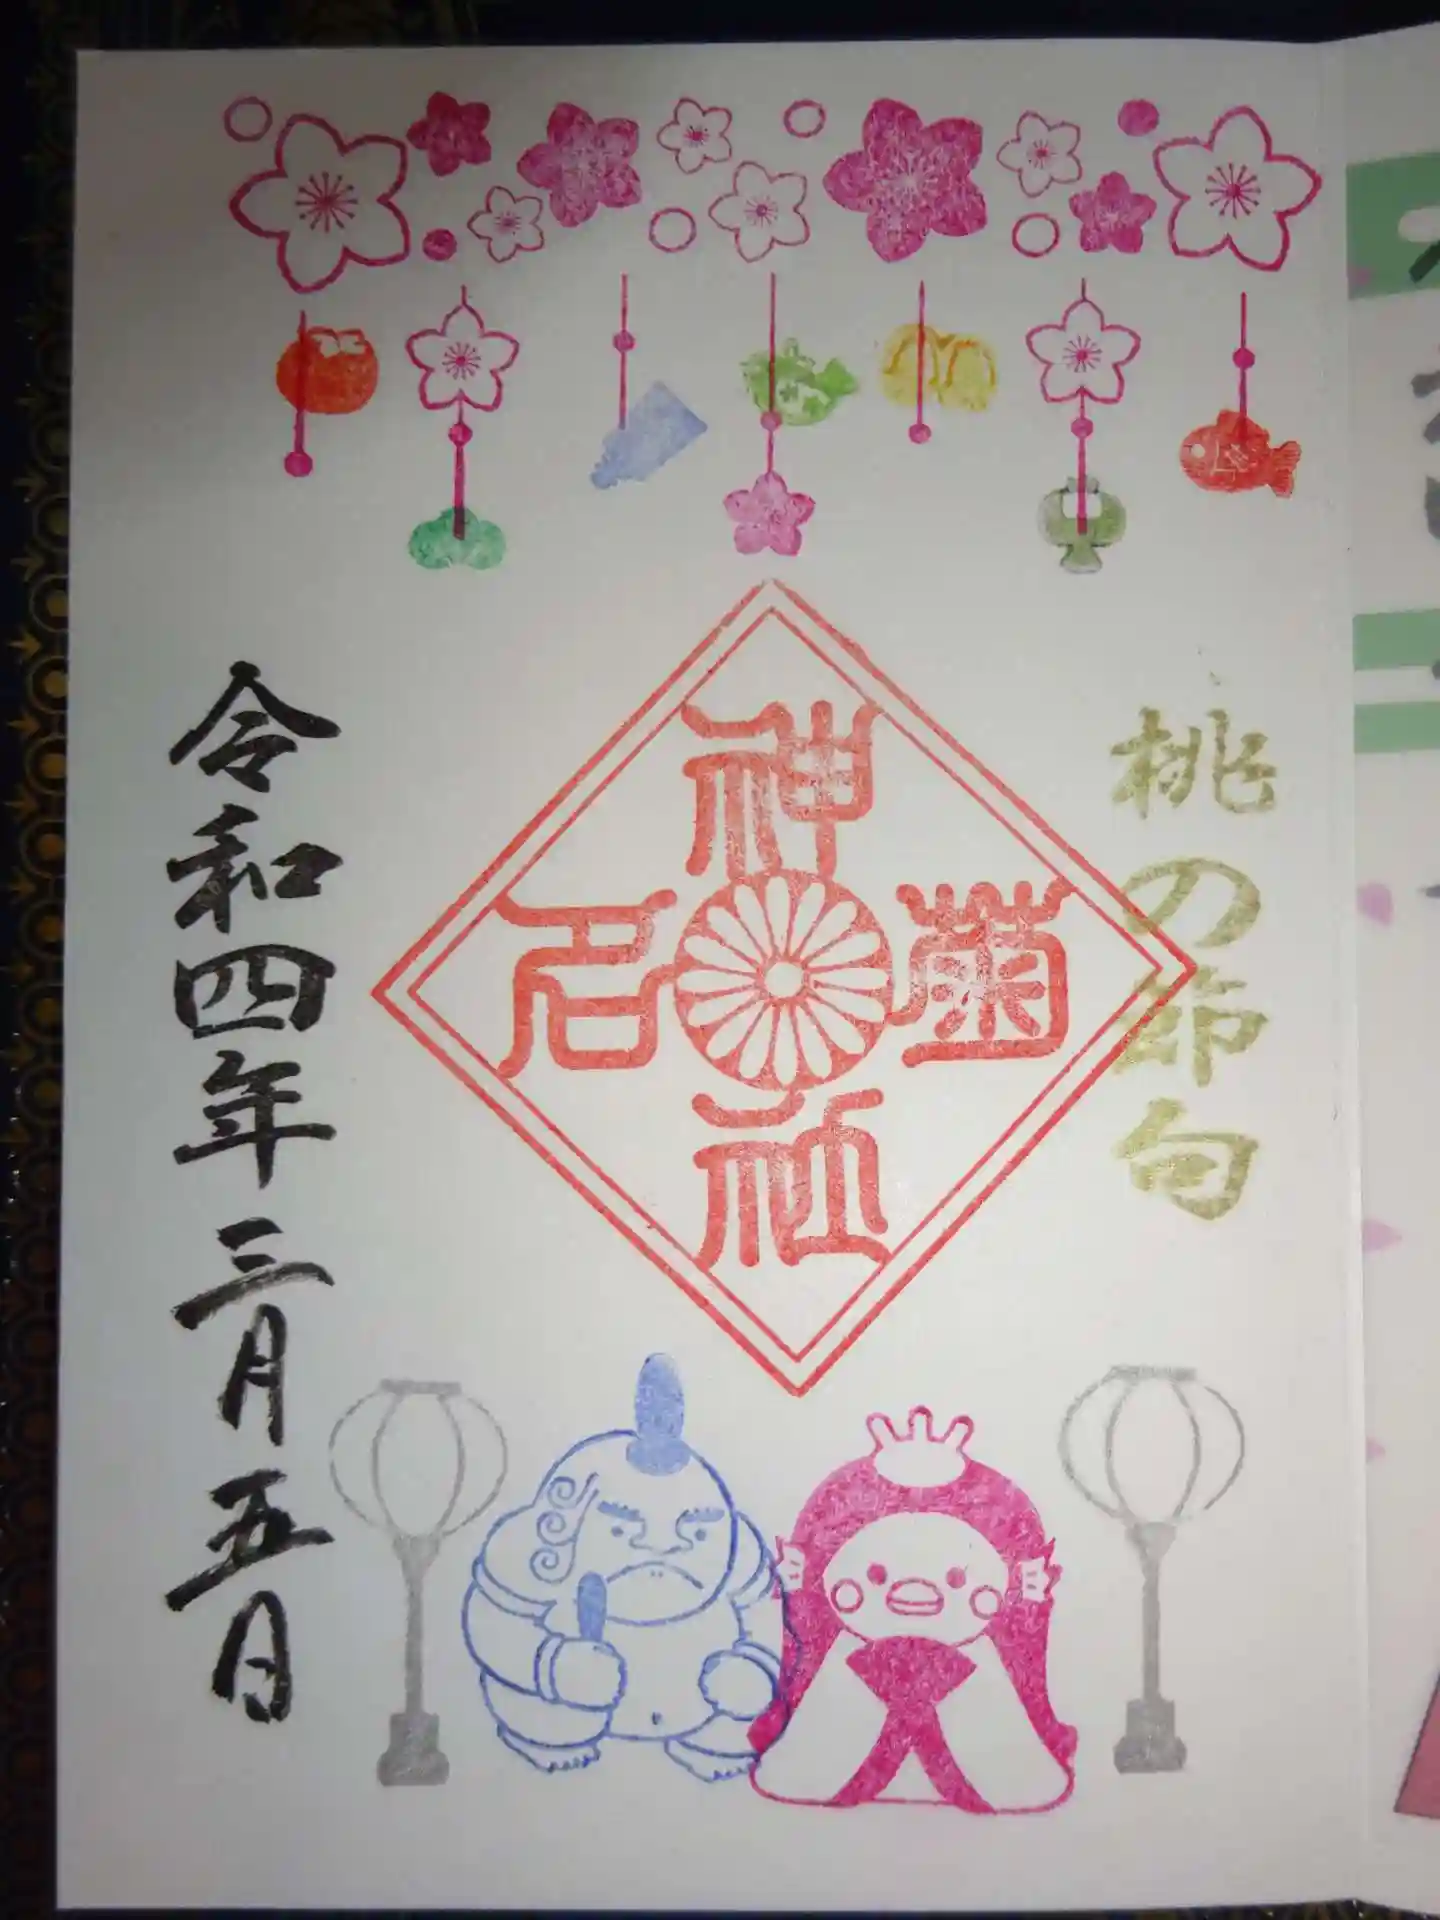 桃の節句
菊名神社
令和四年三月五日